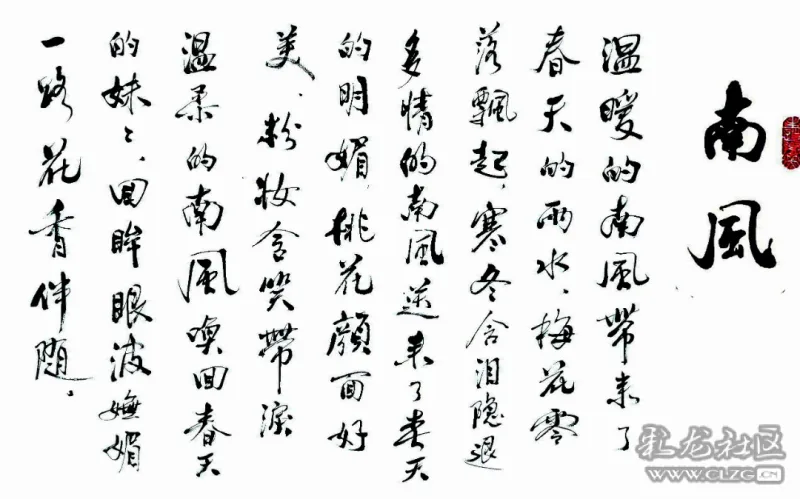 南風
温暖的南風帶来了
春天的雨水、梅花零
落飄起,寒冬含泪隐退
多情的南風送来了春天
的明媚,桃花顏面好
美、粉妆含笑帶淚
温柔的南風喚回春天
的妹々、回眸眼波嫵媚
一路花香伴随。
彩龙社区
WWW.CLZG.CN